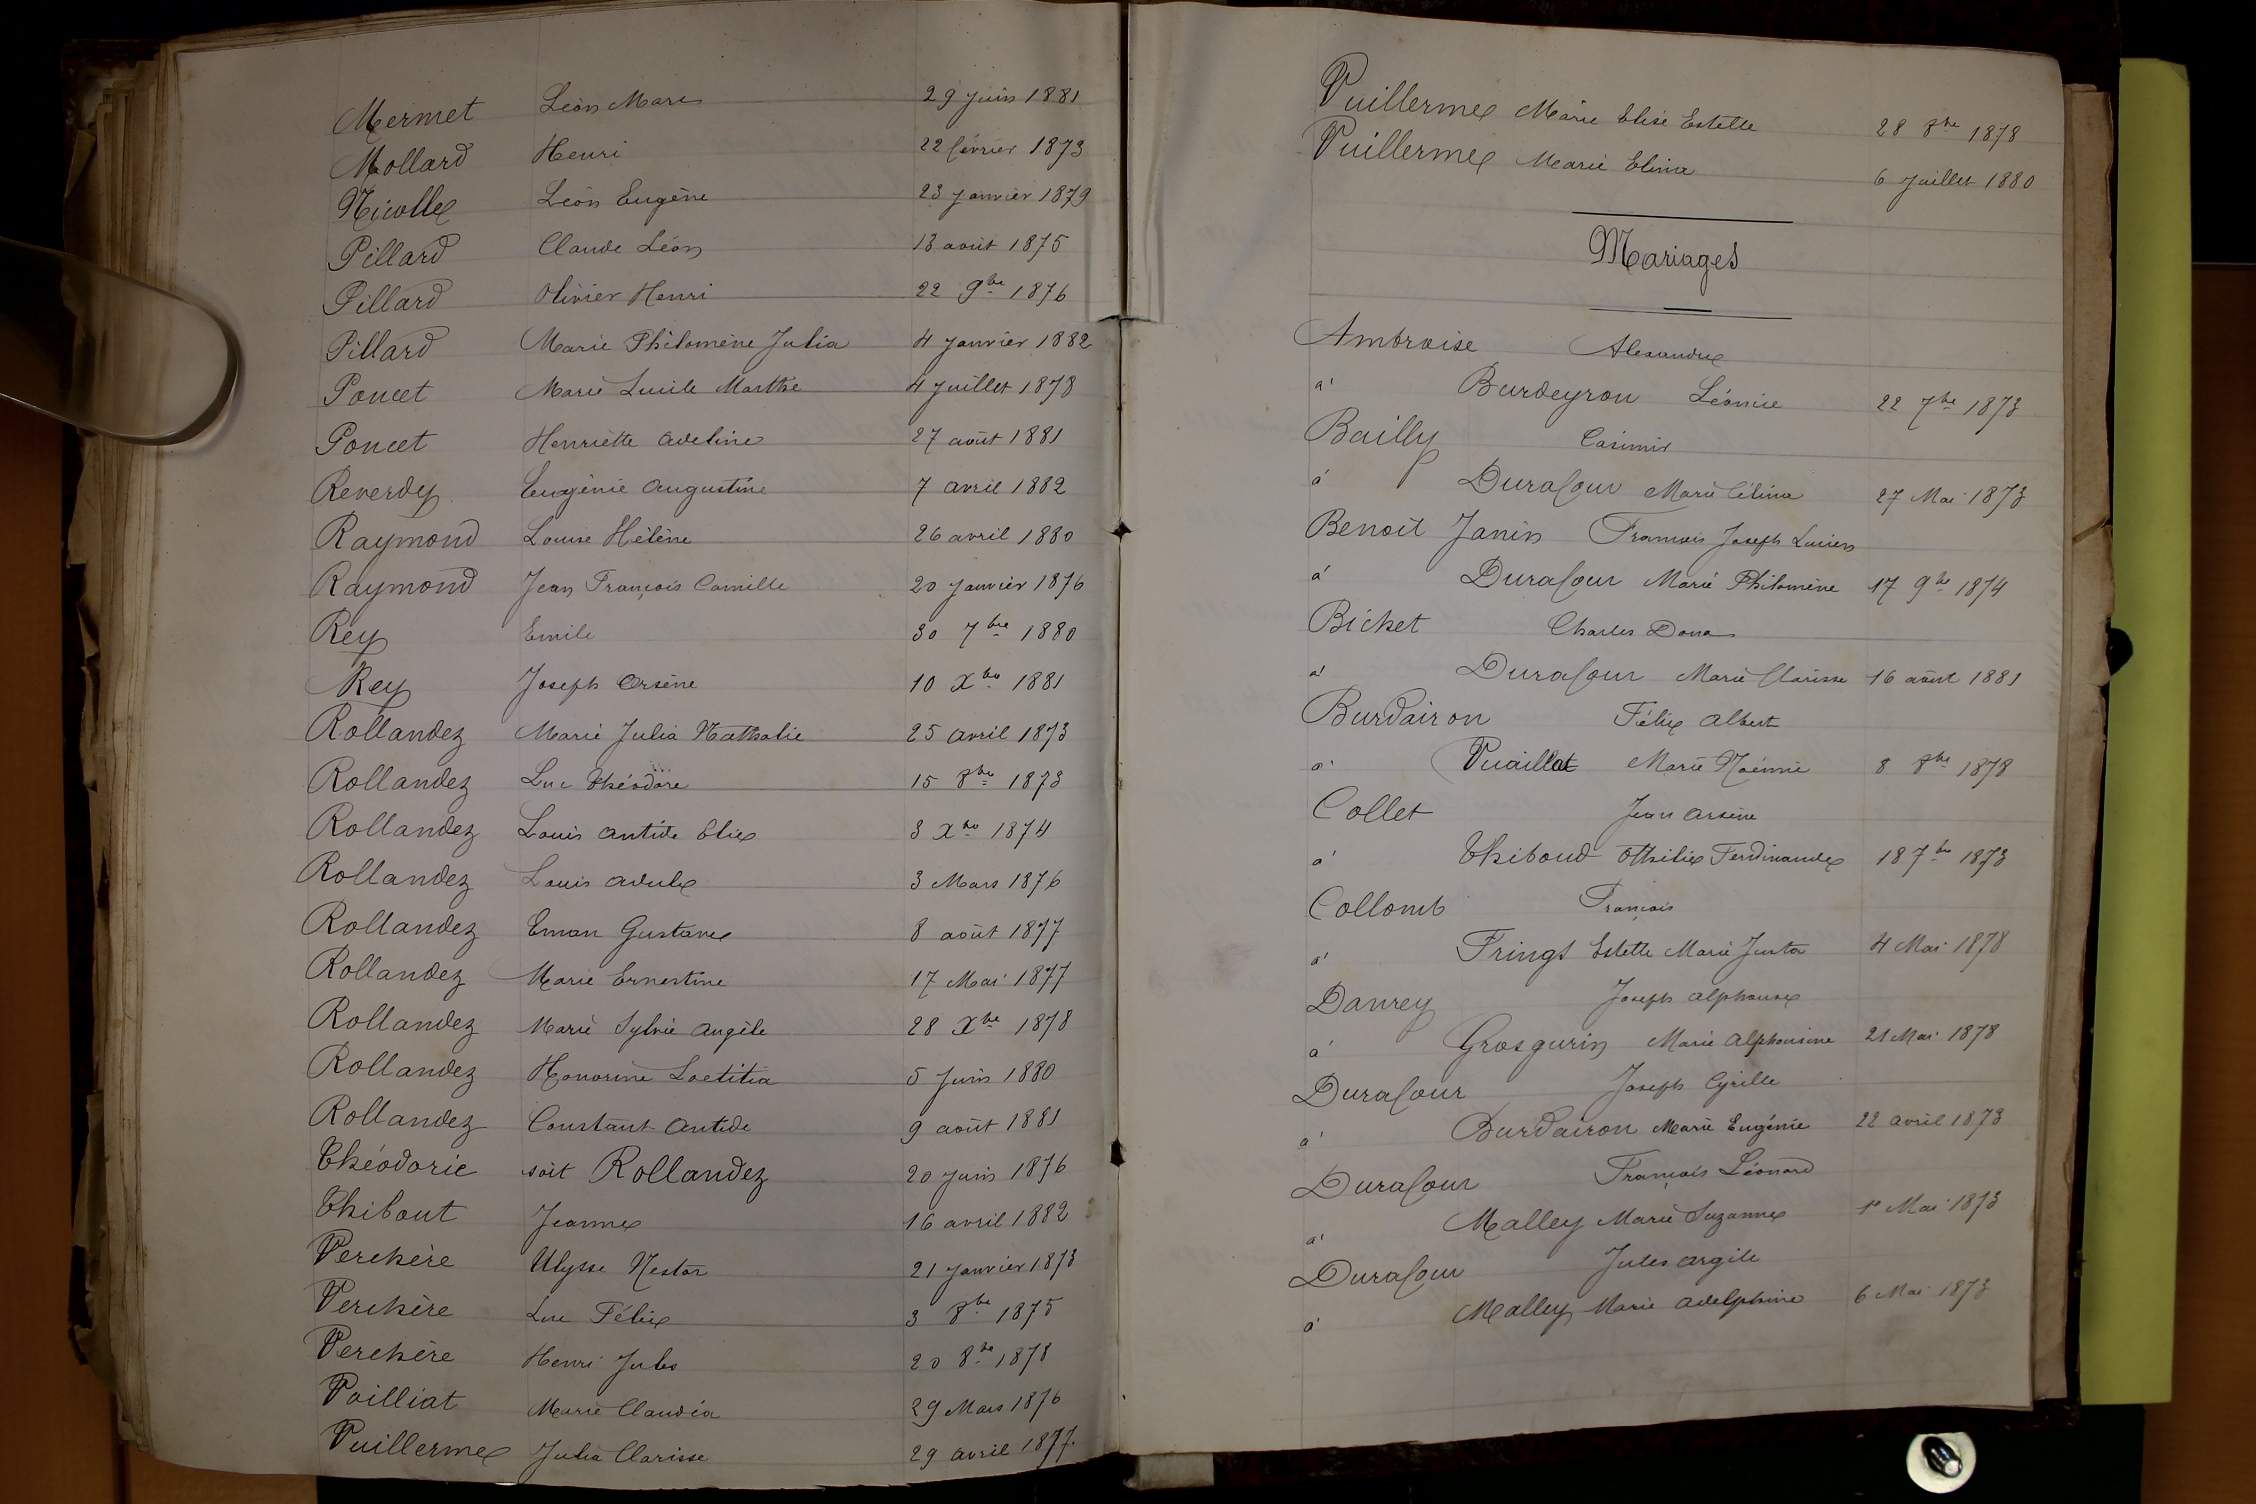 Mermet Léon Marc 29 Juin 1881
Mollard Henri 22 février 1873
Nicolle Léon Eugène 23 Janvier 1879
Pillard Claude Léon 13 août 1875
Pillard Olivier Henri 22 9bre 1876
Pillard Marie Philomène Julia 4 Janvier 1882
Poncet Marie Lucile Marthe 4 Juillet 1878
Poncet Henriette Adeline 27 août 1881
Reverdy Eugénie Augustine 7 avril 1882
Raymond Louise Hélène 26 avril 1880
Raymond Jean François Camille 20 Janvier 1876
Rey Emile 30 7bre 1880
Rey Joseph Arsène 10 Xbre 1881
Rollandez Marie Julia Nathalie 25 avril 1873
Rollandez Luc Théodore 15 8bre 1873
Rollandez Louis Antide Elie 3 Xbre 1874
Rollandez Louis Adule 3 Mars 1876
Rollandez Eman Gustave 8 août 1877
Rollandez Marie Ernestine 17 Mai 1877
Rollandez Marie Sylvie Angèle 28 Xbre 1878
Rollandez Honorine Laetitia 5 Juin 1880
Rollandez Constant Antide 9 août 1881
Théodorie soit Rollandez 20 Juin 1876
Thibout Jeanne 16 avril 1882
Verchère Ulysse Nestor 21 Janvier 1873
Verchère Luc Félix 3 8bre 1875
Verchère Henri Jules 20 8bre 1878
Voilliat Marie Claudia 29 Mars 1876
Vuillerme Julia Clarisse 29 avril 1877.
Vuillerme Marie Elise Estelle 28 8bre 1878
Vuillerme Marie Elina 6 Juillet 1880
Mariages
Ambroise Alexandre
à Burdeyron Léonie 22 7bre 1873
Bailly Casimir
à Durafour Marie Célina 27 Mai 1873
Benoit Janin François Joseph Lucien
à Durafour Marie Philomène 17 9bre 1874
Bichet Charles Dona
à Durafour Marie Clarisse 16 août 1881
Burdairon Félix Albert
à Vuaillat Marie Noémie 8 8bre 1878
Collet Jean Arsène
à Thiboud Othilie Ferdinande 18 7bre 1873
Collomb François
à Frings Estelle Marie Justa 4 Mai 1878
Danrey Joseph Alphonse
à Grosgurin Marie Alphonsine 21 Mai 1878
Durafour Joseph Cyrille
à Burdairon Marie Eugénie 22 avril 1873
Durafour François Léonard
à Malley Marie Suzanne 1er Mai 1873
Durafour Jules Argile
à Malley Marie Adelphine 6 Mai 1873